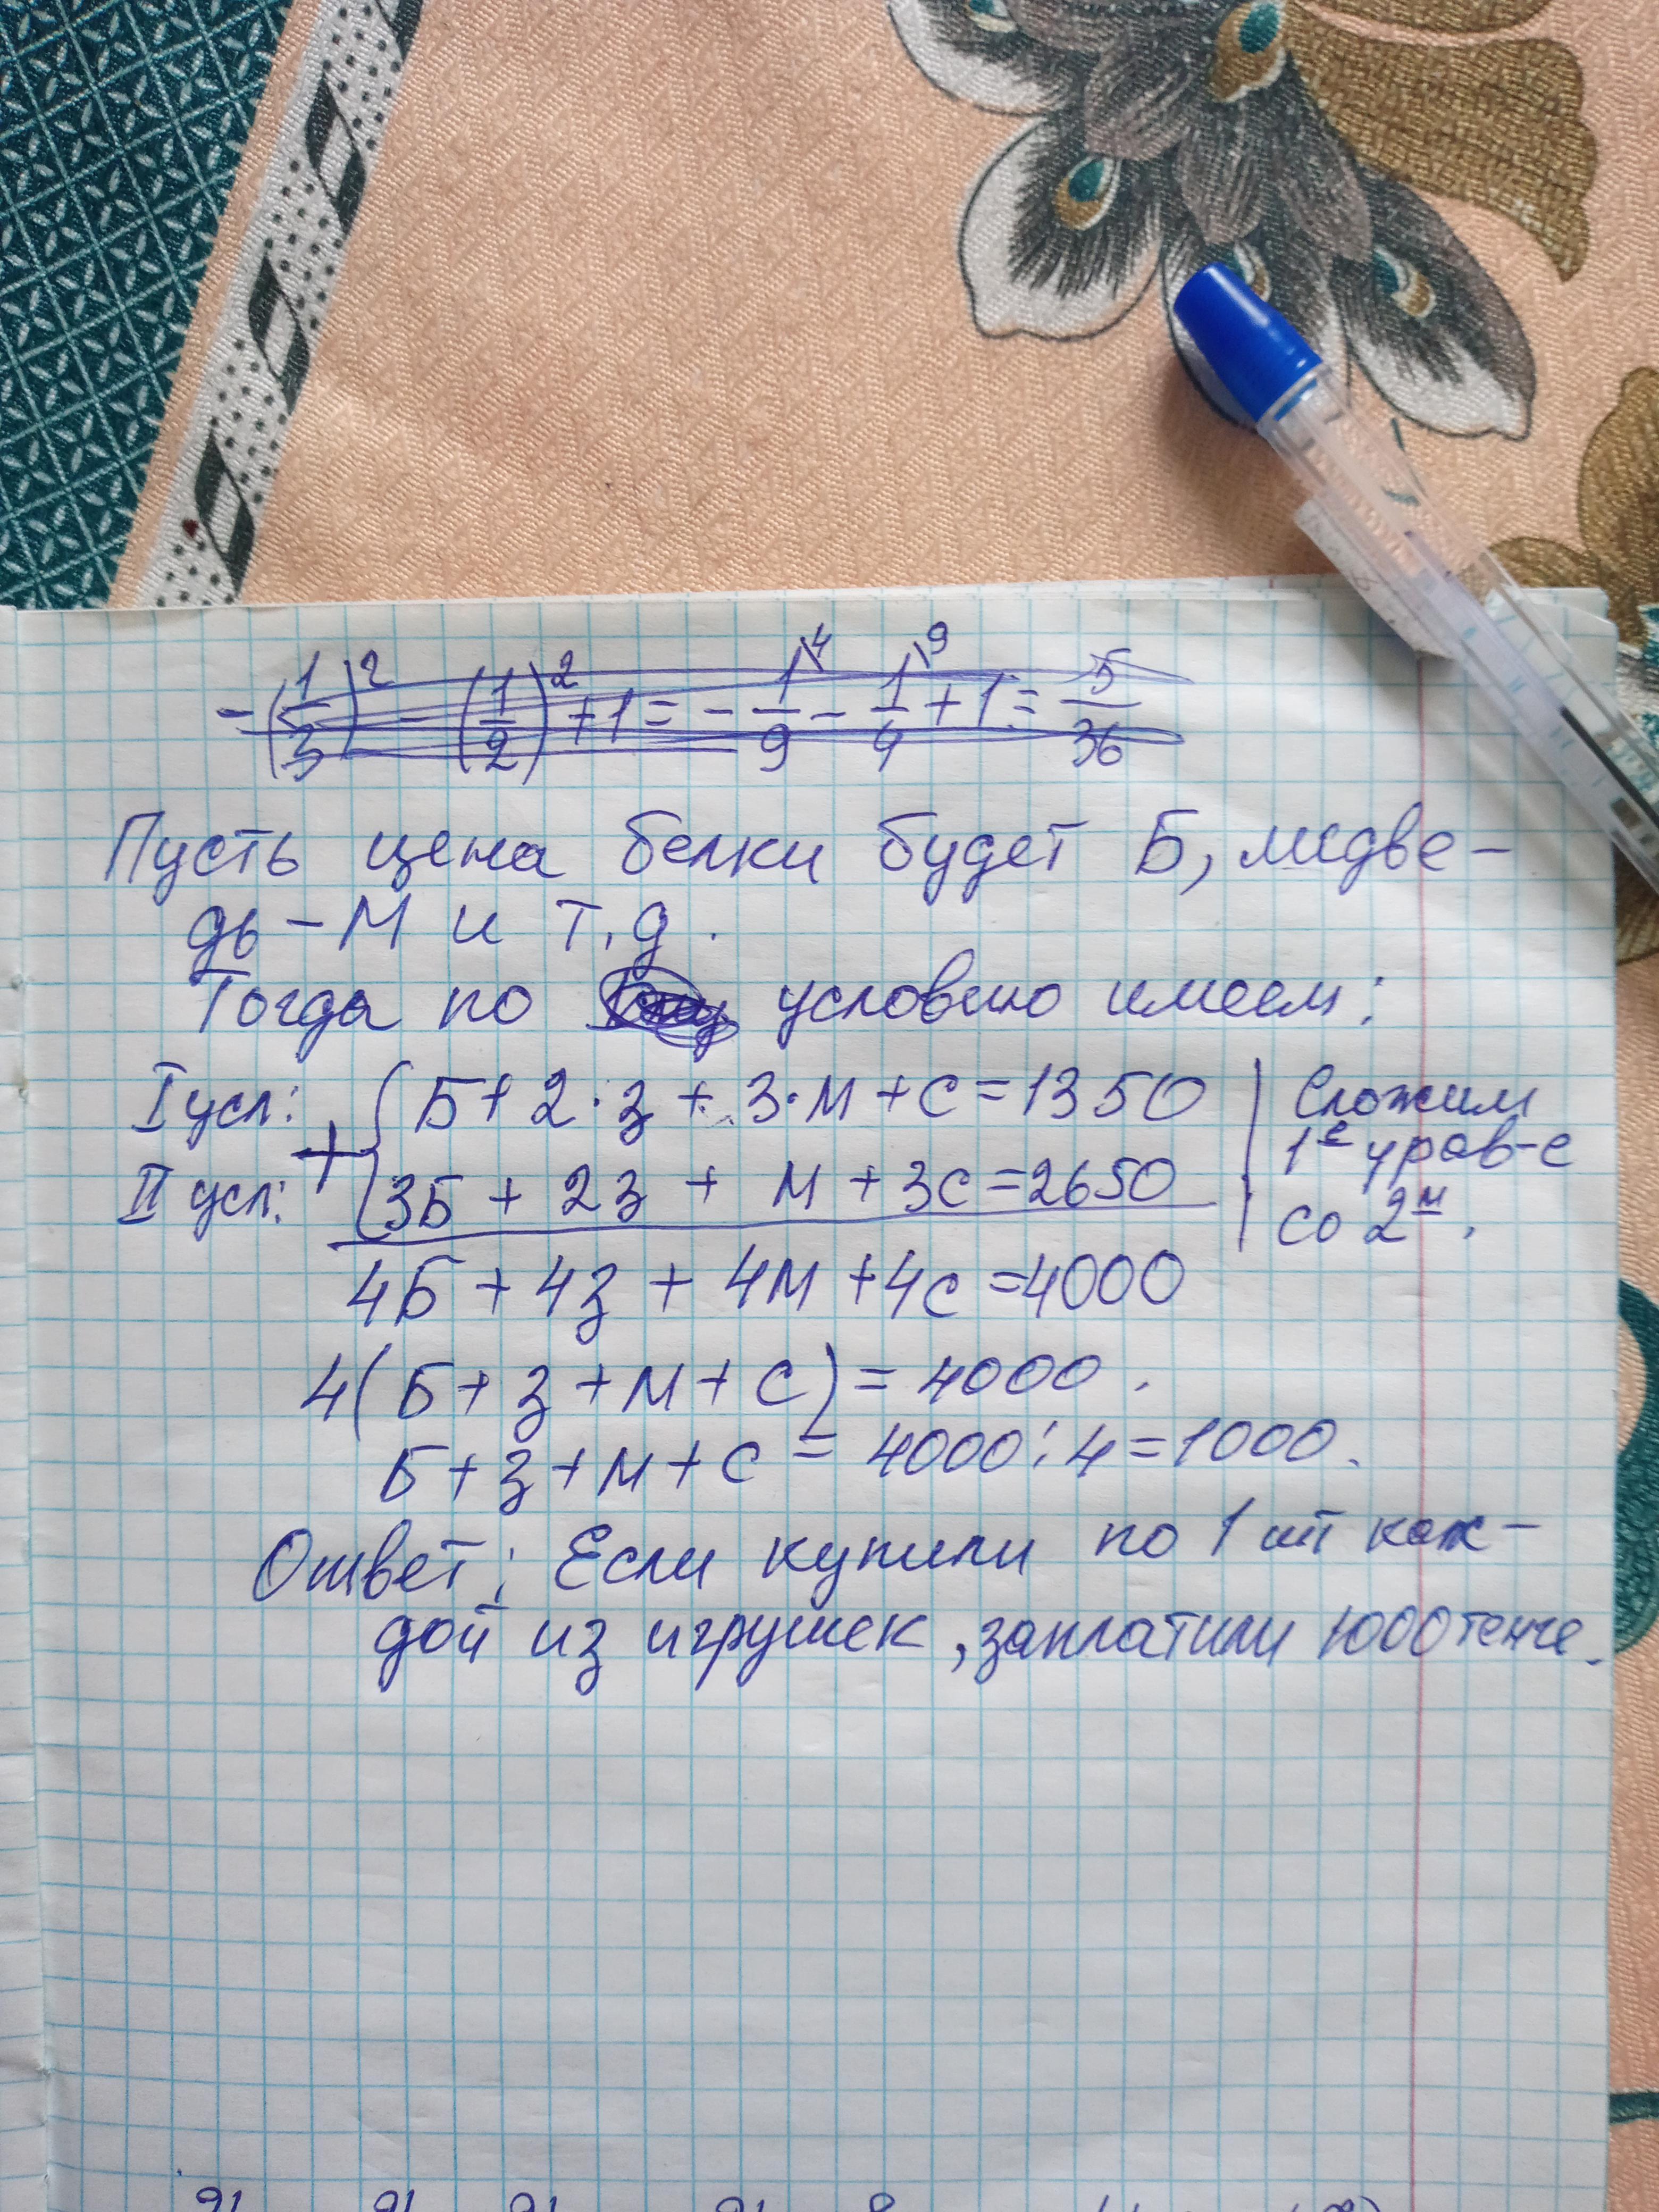 -(1/3)² - (1/2)² + 1 = - 1\⁴/9 - 1\⁹/4 + 1 = 5/36
Пусть цена белки будет Б, медве-
дь - М и т.д.
Тогда по условию имеем:
I усл: Б + 2·З + 3·М + С = 1350 | Сложим
1е урав-е
II усл: + 3Б + 2З + М + 3С = 2650
со 2м.
4Б + 4З + 4М + 4С = 4000
4(Б + З + М + С) = 4000.
Б + З + М + С = 4000 : 4 = 1000.
Ответ: Если купили по 1 шт каж-
дой из игрушек, заплатили 1000 тенге.